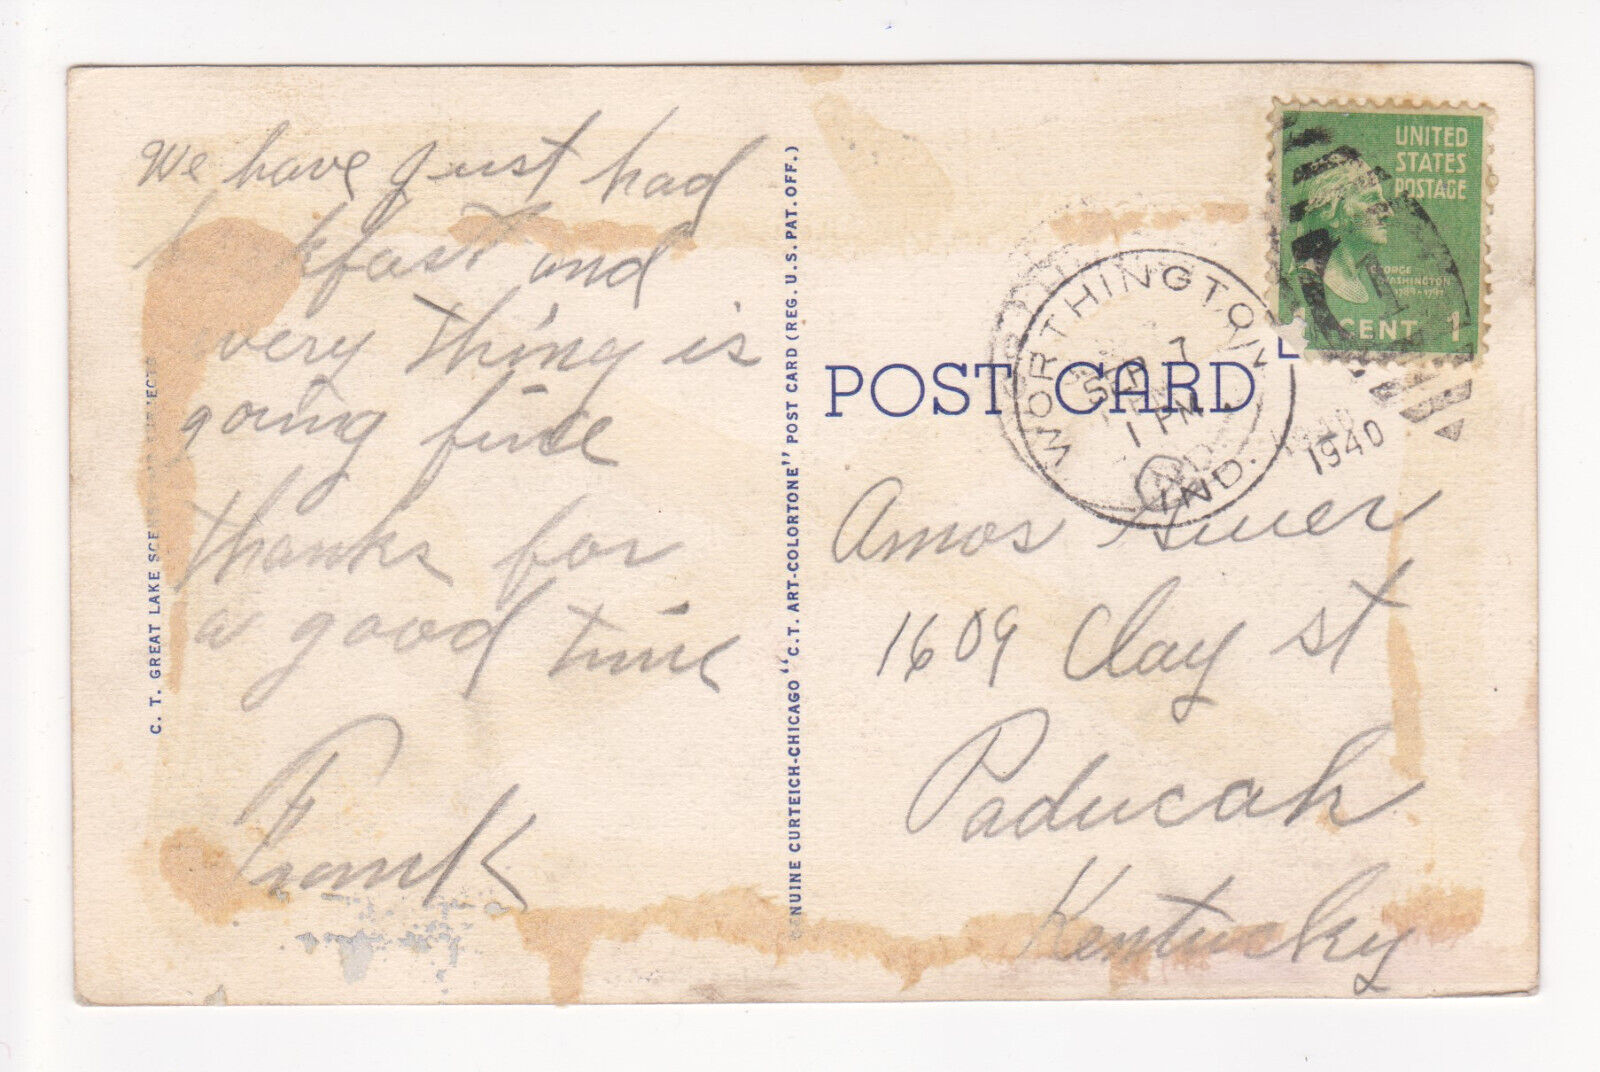 We have just had
kfast and
very thing is
going fine
thanks for
a good time
Frank
C. T. GREAT LAKE SCENES
NUINE CURTEICH-CHICAGO "C. T. ART-COLORTONE" POST CARD (REG. U. S. PAT. OFF.)
UNITED
STATES
POSTAGE
GEORGE
WASHINGTON
1789-1797
CENT 1
WORTHINGTON
SEP 7
1 PM
IND.
1940
POST CARD
Amos
1609 Clay st
Paducah
Kentucky